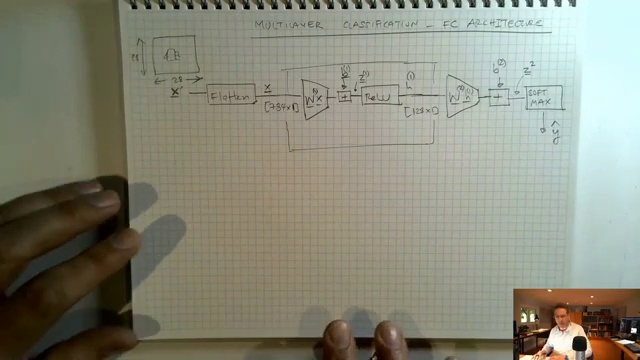 MULTILAYER CLASSIFICATION - FC ARCHITECTURE
28
28
x'
Flatten
x
[784x1]
W⁽¹⁾x
b⁽¹⁾
+
z⁽¹⁾
ReLU
h⁽¹⁾
[128x1]
W⁽²⁾h⁽¹⁾
b⁽²⁾
+
z²
SOFT
MAX
ŷ